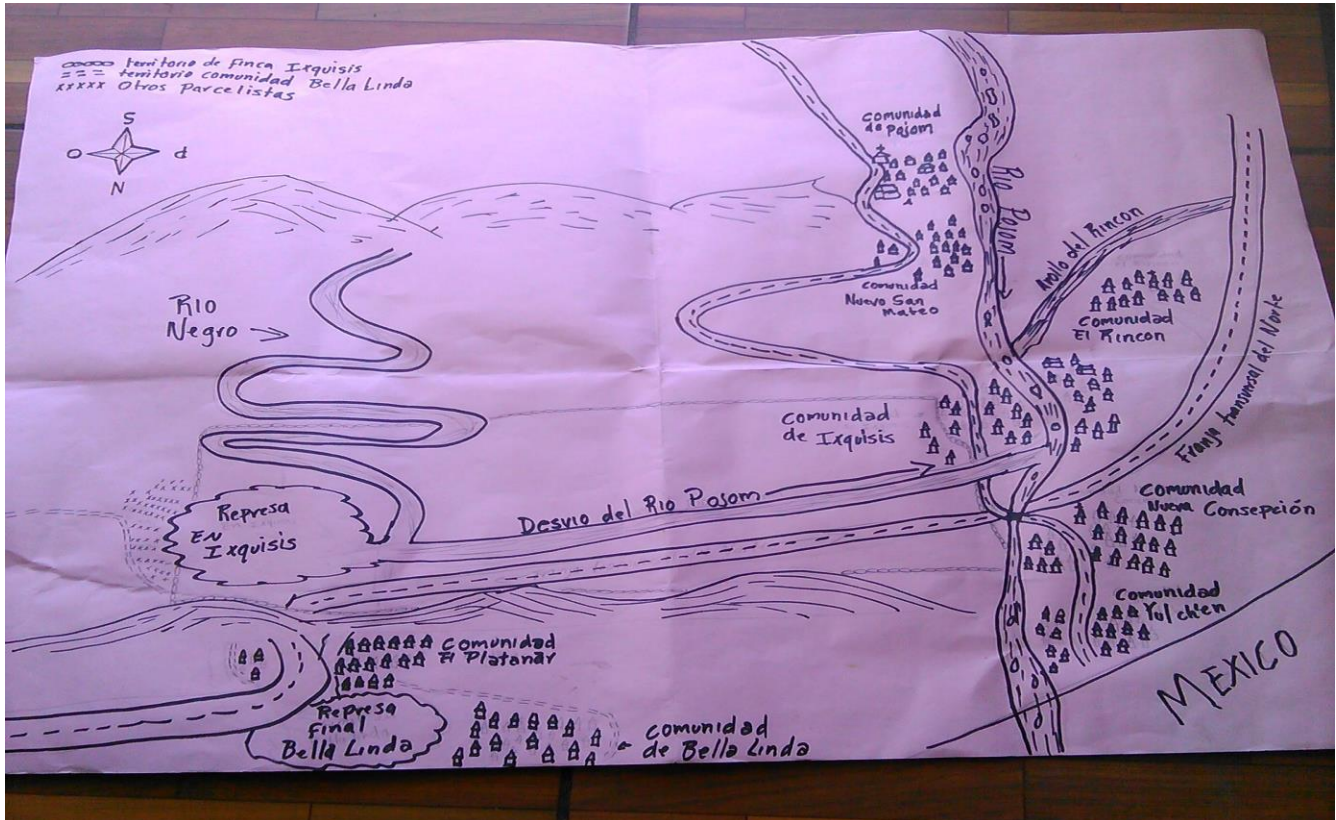 territorio de Finca Ixquisis
territorio comunidad Bella Linda
xxxxx Otros Parcelistas
S
O
P
N
RIO
Negro
Comunidad
de Pojom
Rio Pojom
Arollo del Rincon
Comunidad
Nuevo San
Mateo
Comunidad
El Rincon
Franja transversal del Norte
Comunidad
de Ixquisis
Represa
EN
Ixquisis
Desvio del Rio Pojom
Comunidad
Nueva Consepción
Comunidad
Yulch'en
MEXICO
Comunidad
El Platanar
Represa
Final
Bella Linda
Comunidad
de Bella Linda